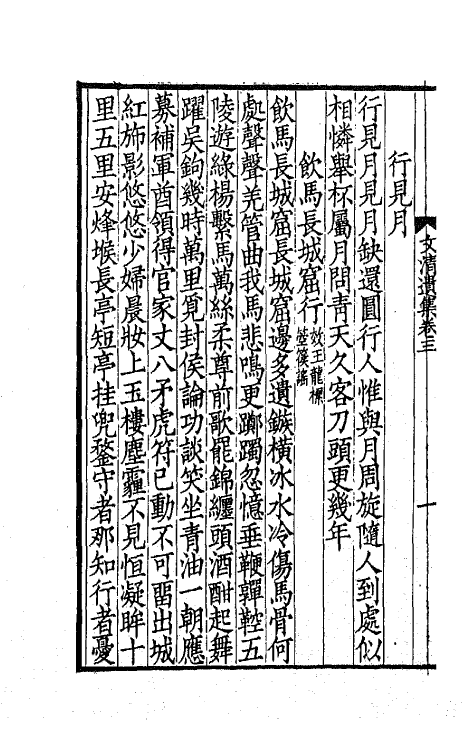 文清遺集卷三
一
行見月
行見月見月缺還圓行人惟與月周旋隨人到處似
相憐舉杯屬月問青天久客刀頭更幾年
飲馬長城窟行效王龍標
箜篌謠
飲馬長城窟長城窟邊多遺鏃橫冰水冷傷馬骨何
處聲聲羌管曲我馬悲鳴更躑躅忽憶垂鞭嚲鞚五
陵遊綠楊繫馬萬絲柔尊前歌罷錦纏頭酒酣起舞
躍吳鉤幾時萬里覓封侯論功談笑坐青油一朝應
募補軍酋領得官家丈八矛虎符已動不可畱出城
紅斾影悠悠少婦晨妝上玉樓塵霾不見恒凝眸十
里五里安烽堠長亭短亭挂兜鍪守者那知行者憂